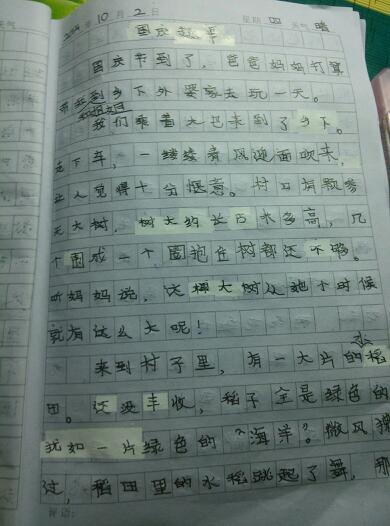 2014年10月2日 星期四 天气晴
国庆趣事
国庆节到了，爸爸妈妈打算
带我和姐姐到乡下外婆家去玩一天。
我们乘着大巴来到了乡下。
走下车，一缕缕清风迎面吹来，
让人觉得十分惬意。村口有颗参
天大树，树大约长百米多高，几
个围成一个圆抱住树都还不够。
听妈妈说，这棵大树从她小时候
就有这么大呢！
来到村子里，有一大片的水稻
田。还没丰收，稻子全是绿色的
犹如一片绿色的“海洋”。微风
过，稻田里的水稻跳起了舞，那
评语：